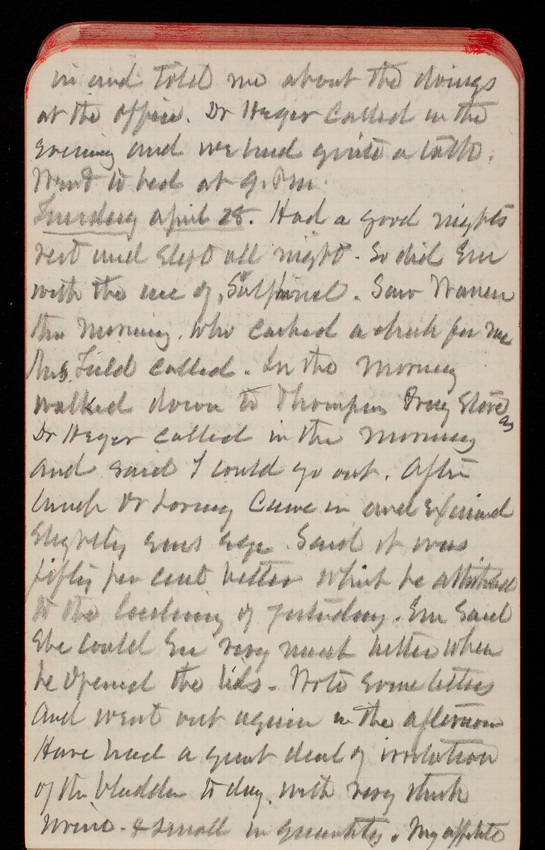 in and told me about the doings
at the office. Dr Heger called in the
evening and we had quite a talk.
Went to bed at 9. P.M.
Tuesday April 28. Had a good nights
rest and slept all night. So did Em
with the use of Sulfonal. Saw Warren
this morning. Who cashed a check for me
Mrs. Field called. In the morning
walked down to Thompson Drug Store as
Dr Heger called in the morning
and said I could go out. After
lunch Dr Loring came in and
slightly ems eye. Said it was
fifty per cent better which he attributed
to the of yesterday. Em said
she could see very much better when
he opened the lids. Wrote some letters
and went out again in the afternoon
Have had a great deal of irritation
of the bladder to day. with very
urine. & small in quantity. My appetite